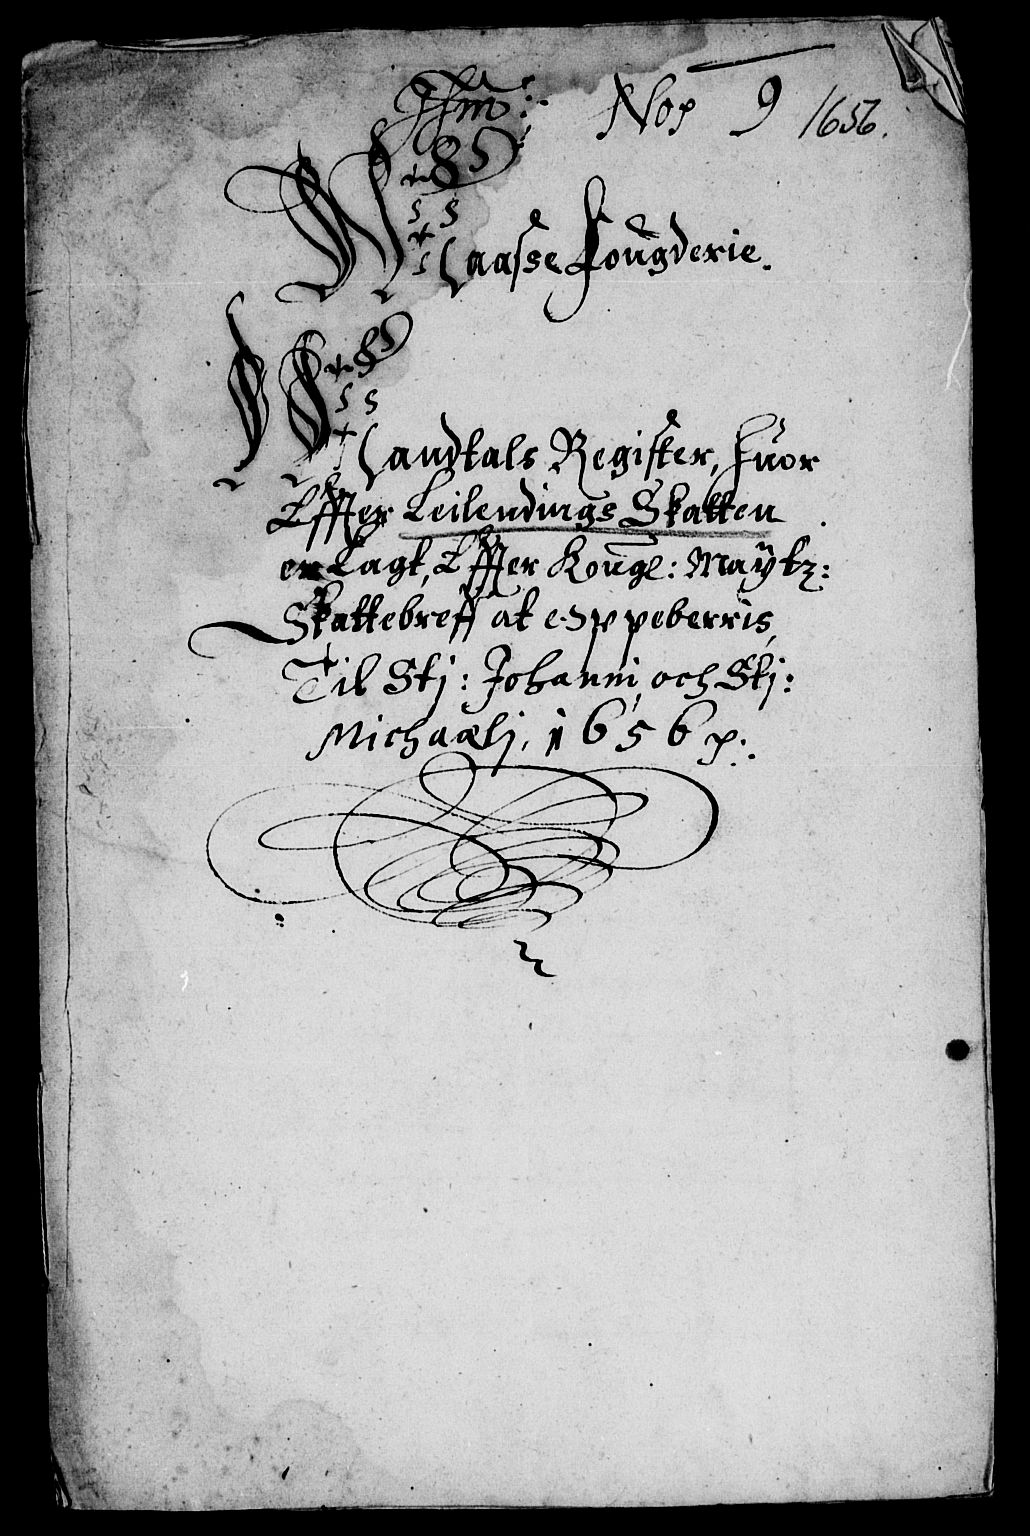 No: 9 1656.
Maasse Fougderie.
Mandtals Register, huor
Effter Leilendings Skatten
er Lagt, Effter Kongl: Maÿtz:
Skattebreff at Oppeberris,
Til Stj: Johanni, och Stj:
Michaælj, 1656 p:.